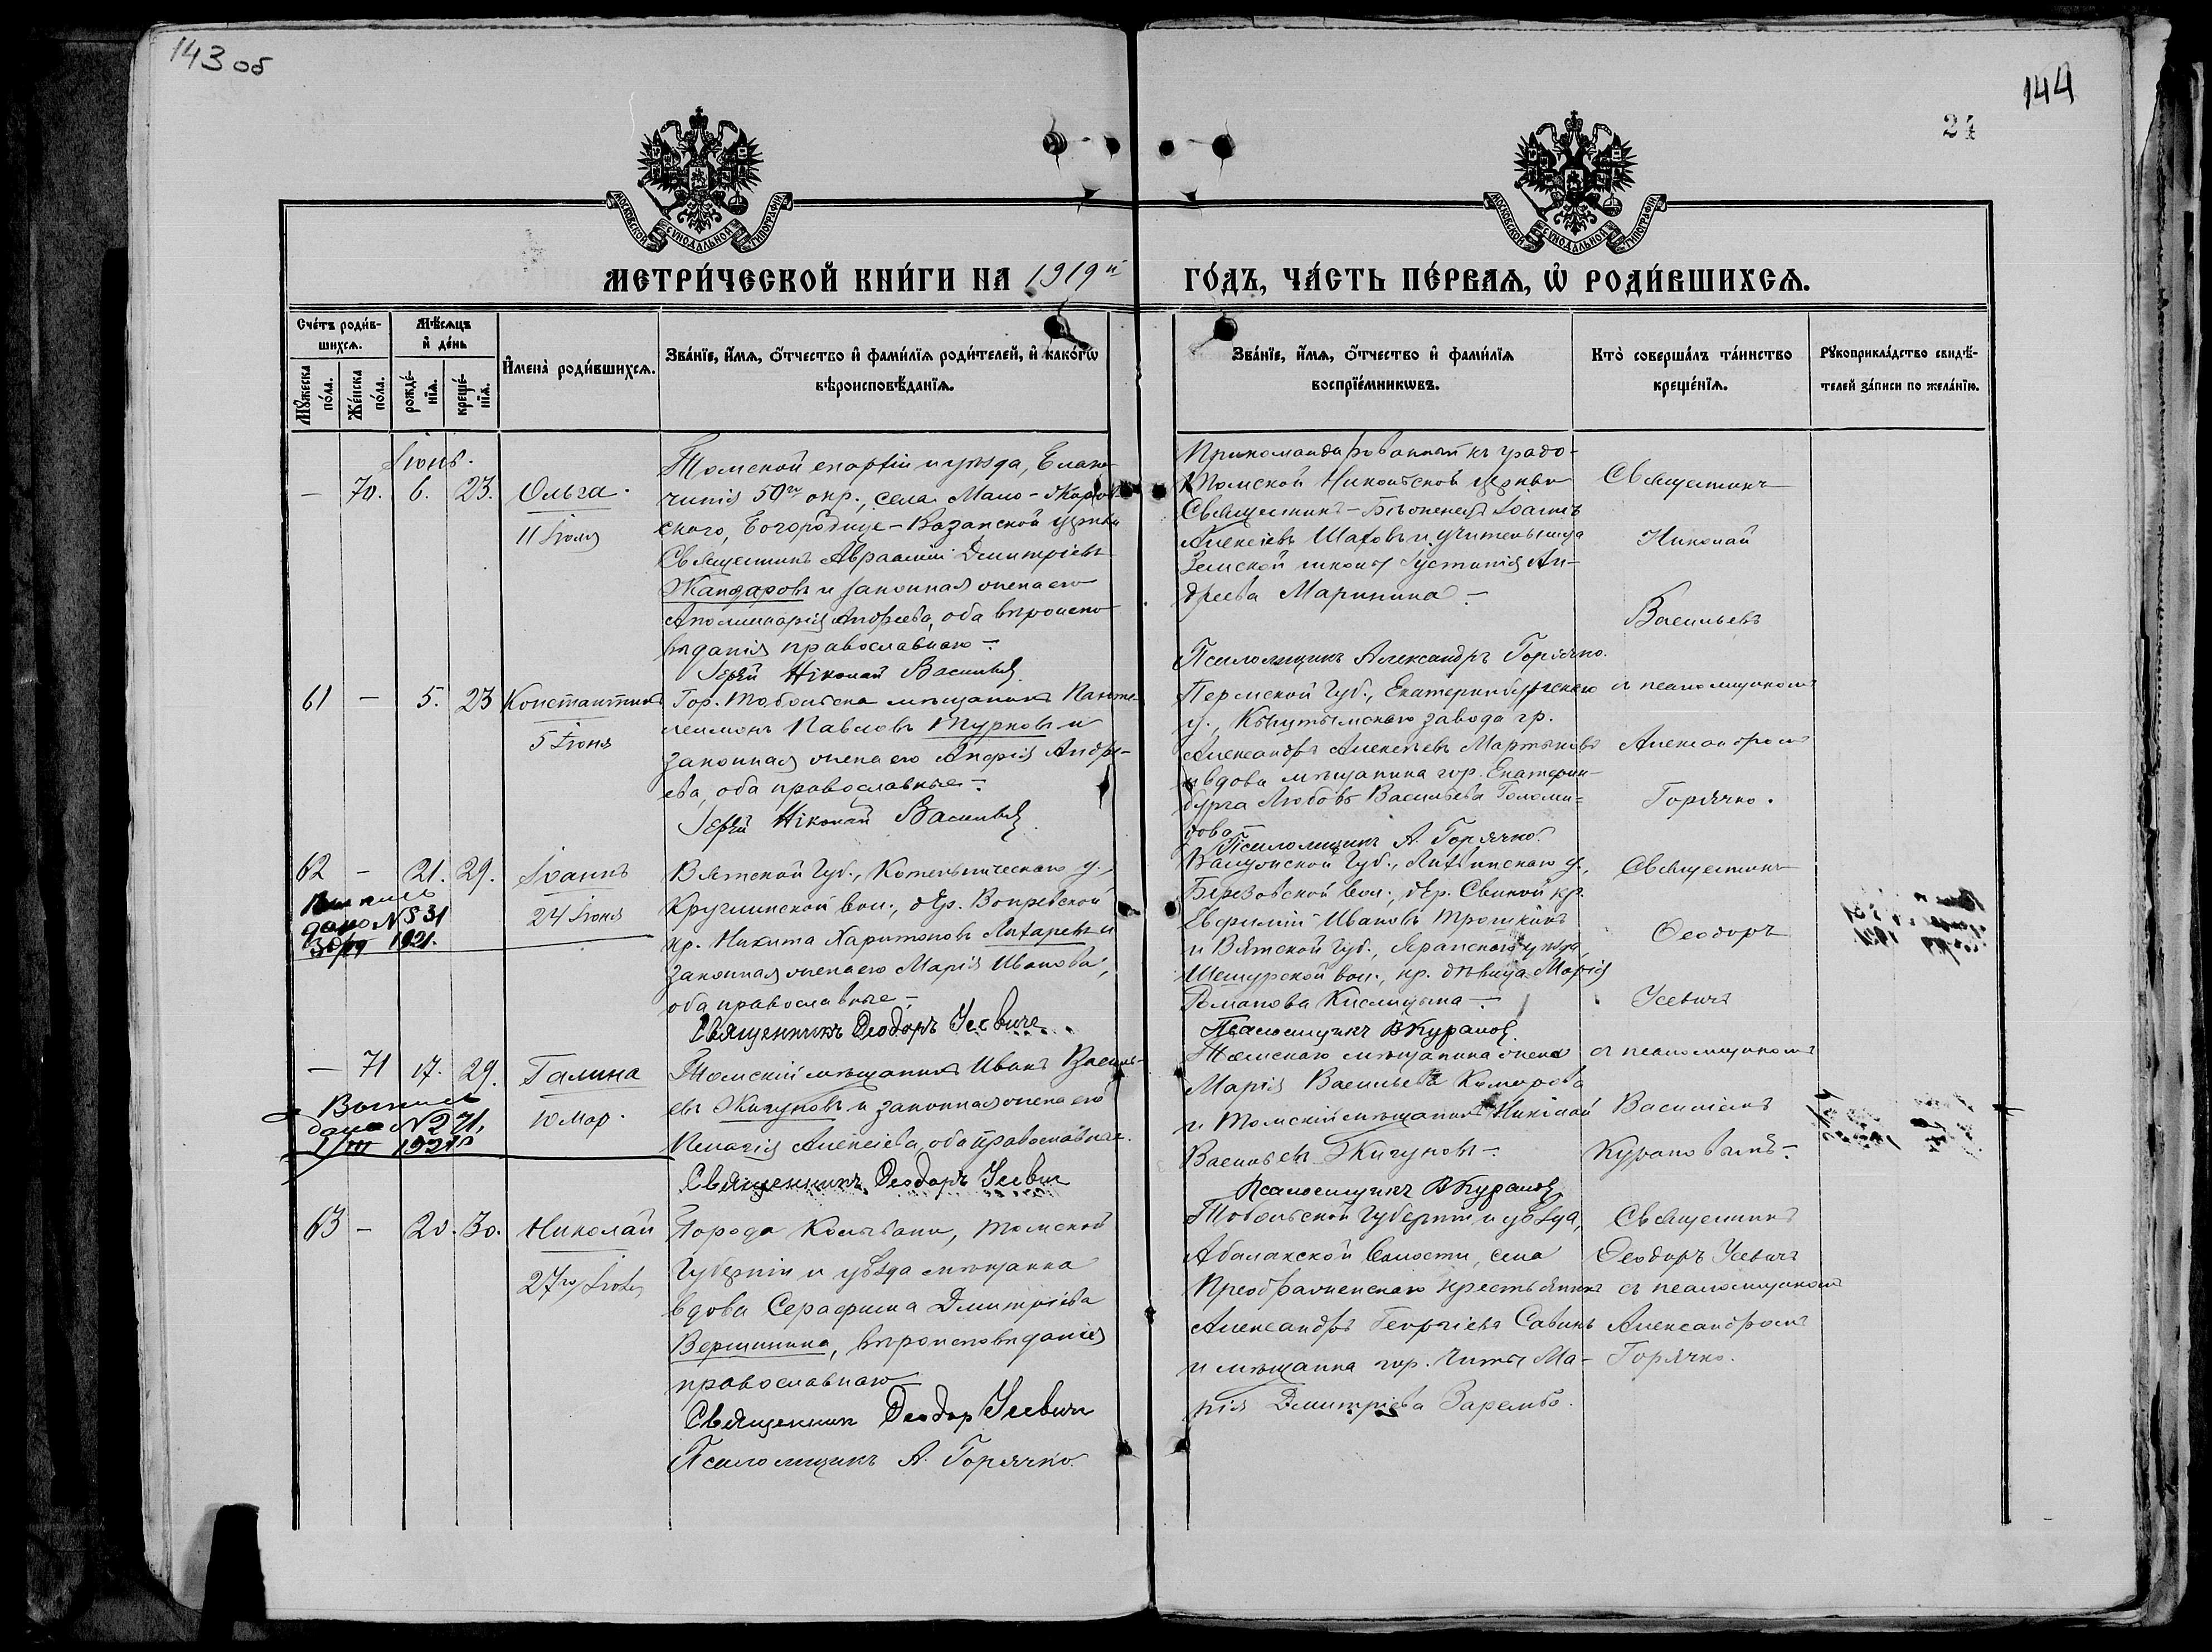 143 об
144
24
МОСКОВСКОЙ СѴНОДАЛЬНОЙ ТИПОГРАФІИ
МОСКОВСКОЙ СѴНОДАЛЬНОЙ ТИПОГРАФІИ
МЕТРИ́ЧЕСКОЙ КНИ́ГИ НА 1919й
ГО́ДЪ, ЧА́СТЬ ПЕ́РВАѦ, Ѡ҆ РОДИ́ВШИХСѦ.
Сче́тъ роди́в-
шихсѧ.
Мѣ́сѧцъ
и҆ де́нь
Мꙋ́жеска
по́ла.
Же́нска
по́ла.
рожде́-
нїѧ.
креще́-
нїѧ.
И҆мена̀ роди́вшихсѧ.
Зва́нїе, и҆́мѧ, ѻ҆́тчество и҆ фами́лїѧ роди́телей, и҆ како́гѡ
вѣроисповѣ́данїѧ.
Зва́нїе, и҆́мѧ, ѻ҆́тчество и҆ фами́лїѧ
воспрїе́мникѡвъ.
Кто̀ соверша́лъ та́инство
креще́нїѧ.
Рꙋкоприкла́дство свидѣ́-
телей за́писи по жела́нїю.
Іюнь.
— 70. 6. 23. Ольга.
11 Іюля
Томской епархіи и уѣзда, Благо-
чинія 50го окр., села Мало-Жиров
ского, Богородице-Казанской церкви
Священникъ Авраамій Димитріевъ
Жандаровъ и законная жена его
Аполлинарія Андреева, оба вѣроиспо
вѣданія православнаго —
Іерей Николай Васильев
Прикомандированный къ градо-
Томской Никольской церкви
Священникъ-Бѣженецъ Іоаннъ
Алексіевъ Шаховъ и учительница
Земской школы Іустинія Ан-
дреева Маринина —
Псаломщикъ Александръ Горячко.
Священникъ
Николай
Васильевъ
61 — 5. 23 Константинъ
5 Іюня
Гор. Тобольска мѣщанинъ Панте-
леимонъ Павловъ Турковъ и
законная жена его Марія Андре-
ева, оба православные —
Іерей Николай Васильев
Пермской Губ., Екатеринбургскаго
у., завода гр.
Александръ Алексѣевъ Мартыновъ
и вдова мѣщанина гор. Екатерин-
бурга Любовь Васильева Голови-
нова —
Псаломщикъ А. Горячко
съ псаломщикомъ
Александромъ
Горячко.
62 — 21. 29. Іоаннъ
24 Іюня
Выпись
дано № 531
1921.
Вятской Губ., Котельническаго у.,
Круглинской вол., дер.
кр. Никита Харитоновъ Лихаревъ и
законная жена его Марія Иванова,
оба православные —
Священникъ Ѳеодоръ Усевиче
Губ., у.,
Березовской вол., дер. Свиной кр.
Евфимій Ивановъ Трошкинъ
и Вятской Губ., Яранскаго уѣзда
Шешурской вол., кр. дѣвица Марія
Романова Кислицына —
Псаломщикъ В Куранов
Священникъ
Ѳеодоръ
Усевичъ
— 71 17. 29. Галина
10 Мар.
Выпись
дана № 271,
1/III 1921 г
Томскій мѣщанинъ Иванъ Василь-
евъ Жигуновъ и законная жена его
Пелагія Алексіева, оба православные.
Священникъ Ѳеодоръ Усевич
Томскаго мѣщанина жена
Марія Васильева Комарова
и Томскій мѣщанинъ Николай
Васильевъ Жигуновъ —
Псаломщикъ В Куранов
съ псаломщикомъ
Василіемъ
Курановымъ —
63 — 20. 30. Николай
27го Іюня
Города Колывани, Томской
Губерніи и уѣзда мѣщанка
вдова Серафима Димитріева
Вершинина, вѣроисповѣданія
православнаго —
Священник Ѳеодор Усевич
Псаломщикъ А. Горячко
Тобольской Губерніи и уѣзда,
Абалакской Волости, села
Преображенскаго крестьянинъ
Александръ Георгіевъ Савинъ
и мѣщанка гор. Читы Ма-
рія Димитріева Зарембо.
Священникъ
Ѳеодоръ Усевичъ
съ псаломщикомъ
Александромъ
Горячко.